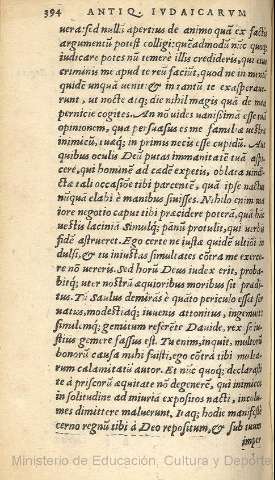 394 ANTIQ. IVDAICARVM
uera: sed nulli apertius de animo quã ex factis
argumentũ potest colligi: quẽadmodũ nũc quoq;
iudicare potes nõ temere illis credideris, qui
criminis me apud te reũ faciũt, quod ne in mentẽ
quidẽ unquã uenit: & in tantũ te exasperaue
runt, ut nocte atq; die nihil magis quã de mea
pernicie cogites. An nõ uides uanissimã esse
opinionem, qua persuasus es me familiæ uestræ
inimicũ, tuaq; in primis necis esse cupidũ. Aut
quibus oculis Deũ putas immanitatẽ tuã aspi
cere, qui hominẽ ad cædẽ expetis, oblata uindi
cta tali occasiõe tibi parcentẽ, quã ipse nactus
nũquã elabi è manibus siuisses. Nihilo enim ma
iore negotio caput tibi præcidere poterã, quã hãc
uestis laciniã. Simulq; pãnũ protulit, qui uerbis
fidẽ astrueret. Ego certe ne iustæ quidẽ ultiõi in
dulsi, & tu iniustas simultates cõtra me exerce
re nõ uereris. Sed horũ Deus iudex erit, proba
bitq; uter nostrũ æquioribus moribus sit prædi
tus. Tũ Saulus demirãs è quãto periculo
modestiãq; iuuenis attonitus, ingemuit:
simulq; gemitum referẽte Dauide, rex se iu
stius gemere fassus est. Tu enim, inquit, multorũ
bonorũ causa mihi fuisti, ego cõtrà tibi multa
rum calamitatũ autor. Et nũc quoq; declarasti
te à priscorũ æquitate nõ degenerẽ, qui inimicos
in solitudine ad iniuria expositos nacti, incolu
mes dimittere maluerunt. Itaq; hodie manifestè
cerno regnũ tibi à Deo repositum, & sub tuum
imper
Ministerio de Educación, Cultura y Deporte